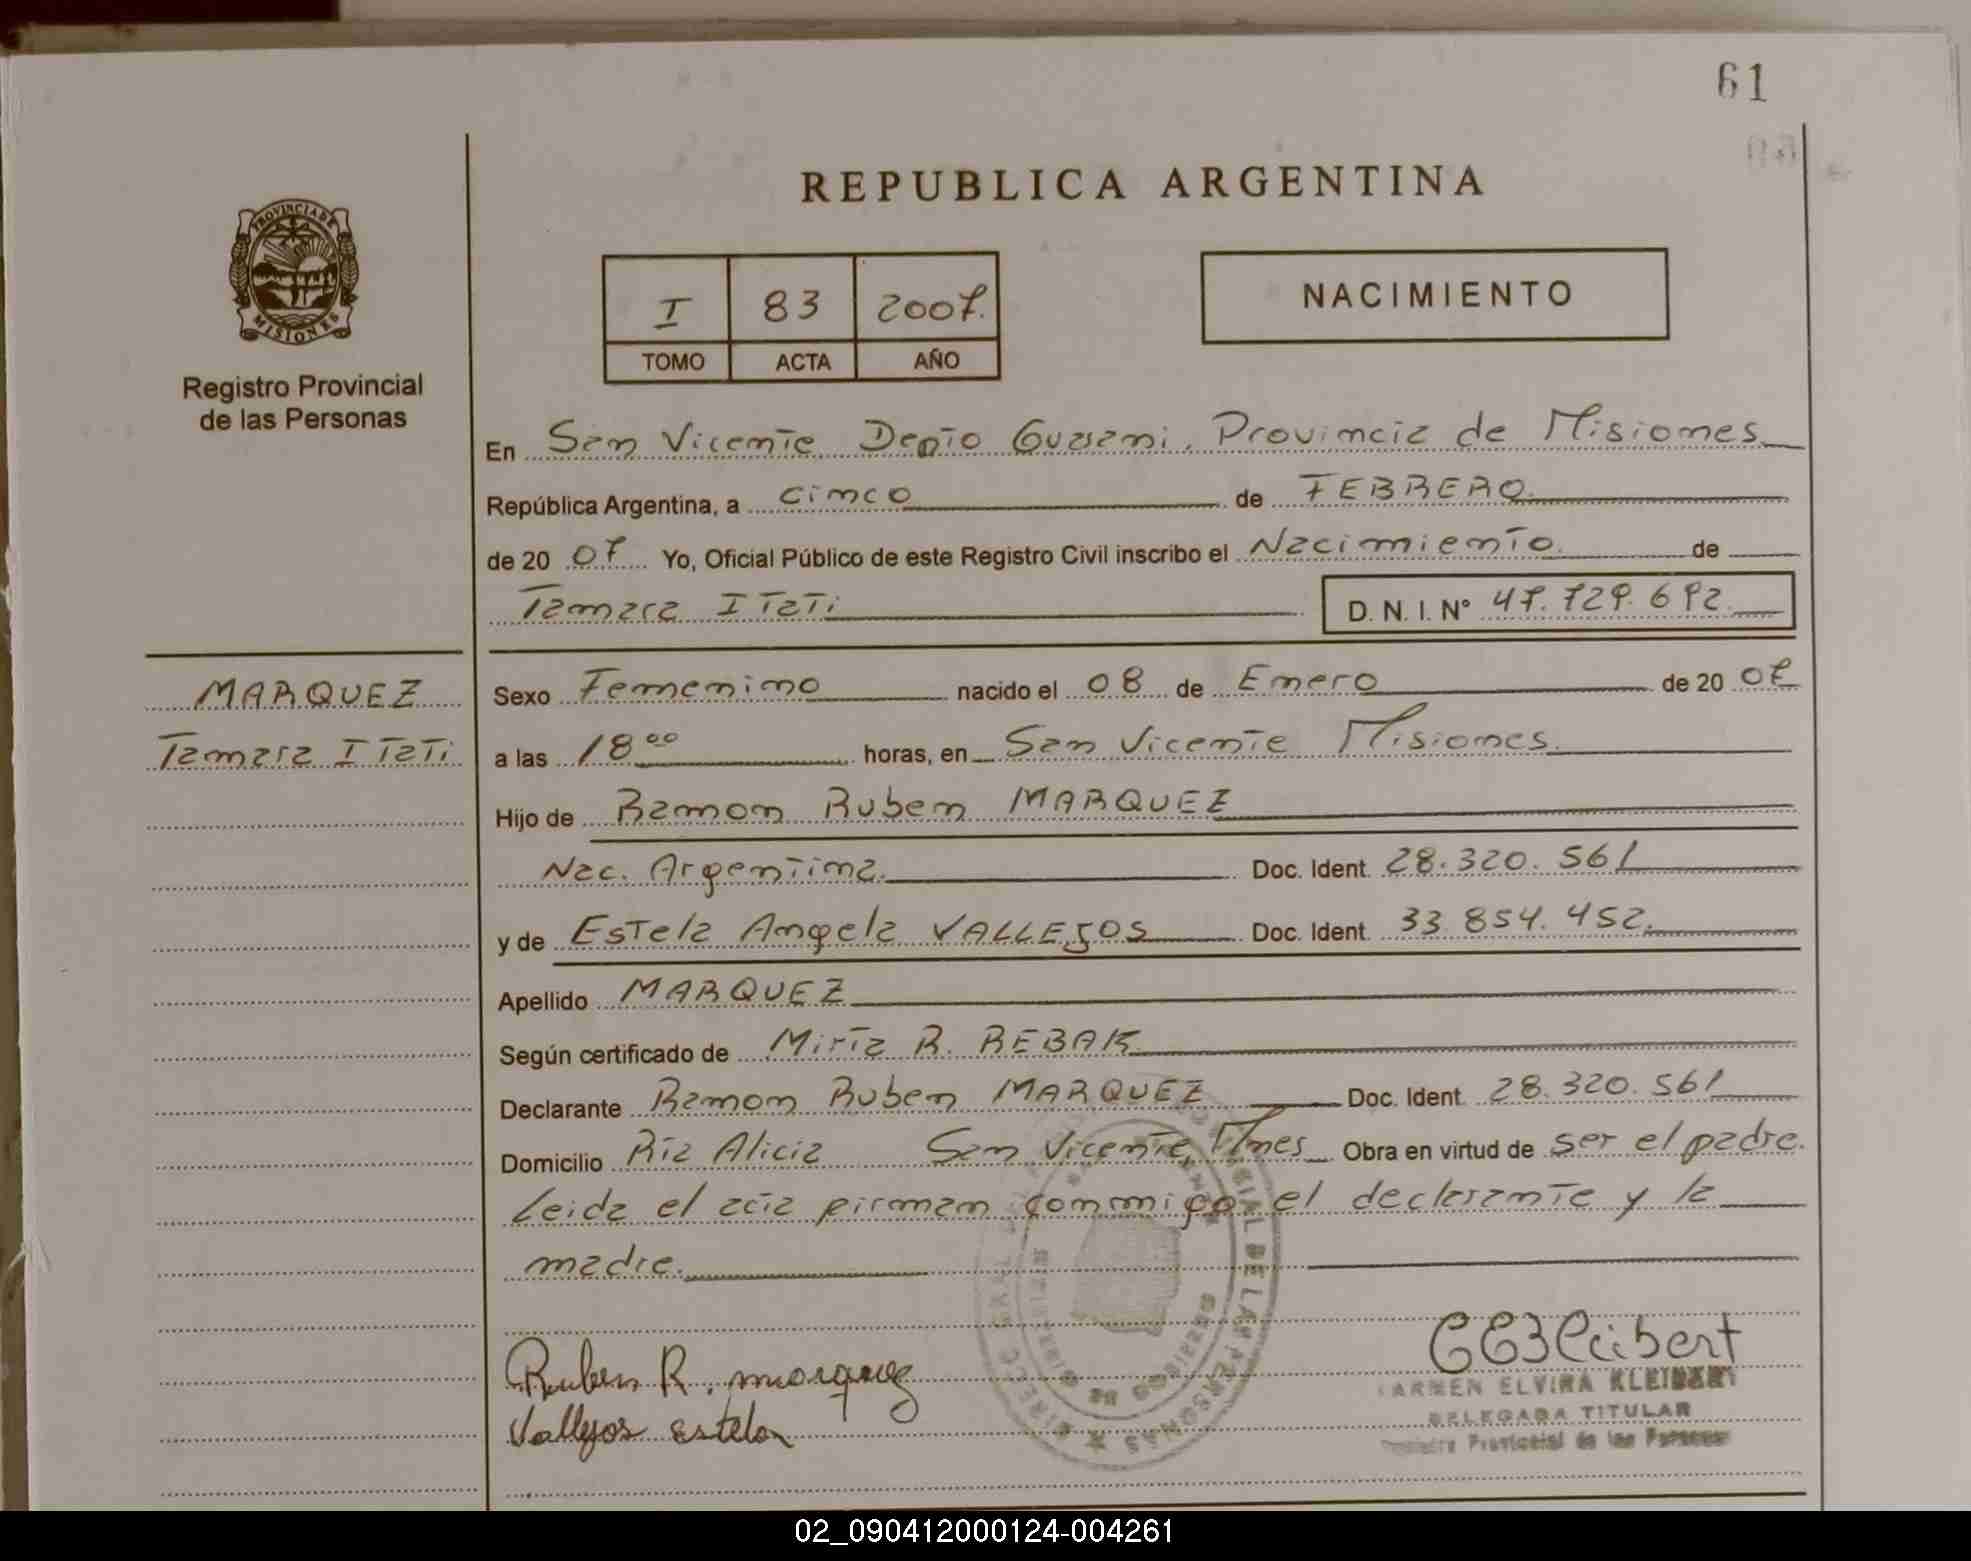 61
REPUBLICA ARGENTINA
PROVINCIA DE
MISIONES
Registro Provincial
de las Personas
I 83 2007.
TOMO ACTA AÑO
NACIMIENTO
En San Vicente Depto Guarani, Provincia de Misiones
República Argentina, a cinco de FEBRERO
de 20 07 Yo, Oficial Público de este Registro Civil inscribo el Nacimiento de
Tamara ITaTi D. N. I. N° 47.729.692
MARQUEZ
Tamara ITaTi
Sexo Femenino nacido el 08 de Enero de 20 07
a las 18 00 horas, en San Vicente Misiones
Hijo de Ramon Ruben MARQUEZ
Nac. Argentina. Doc. Ident. 28.320.561
y de Estela Angela VALLEJOS Doc. Ident. 33.854.452.
Apellido MARQUEZ
Según certificado de Mirta R. REBAK
Declarante Ramon Ruben MARQUEZ Doc. Ident. 28.320.561
Domicilio Rta Alicia San Vicente, Mnes Obra en virtud de ser el padre.
Leida el acta firman conmigo el declarante y la
madre.
Ruben R. marquez
Vallejos Estela
CARMEN ELVIRA KLEIBERT
DELEGADA TITULAR
Registro Provincial de las Personas
02_090412000124-004261